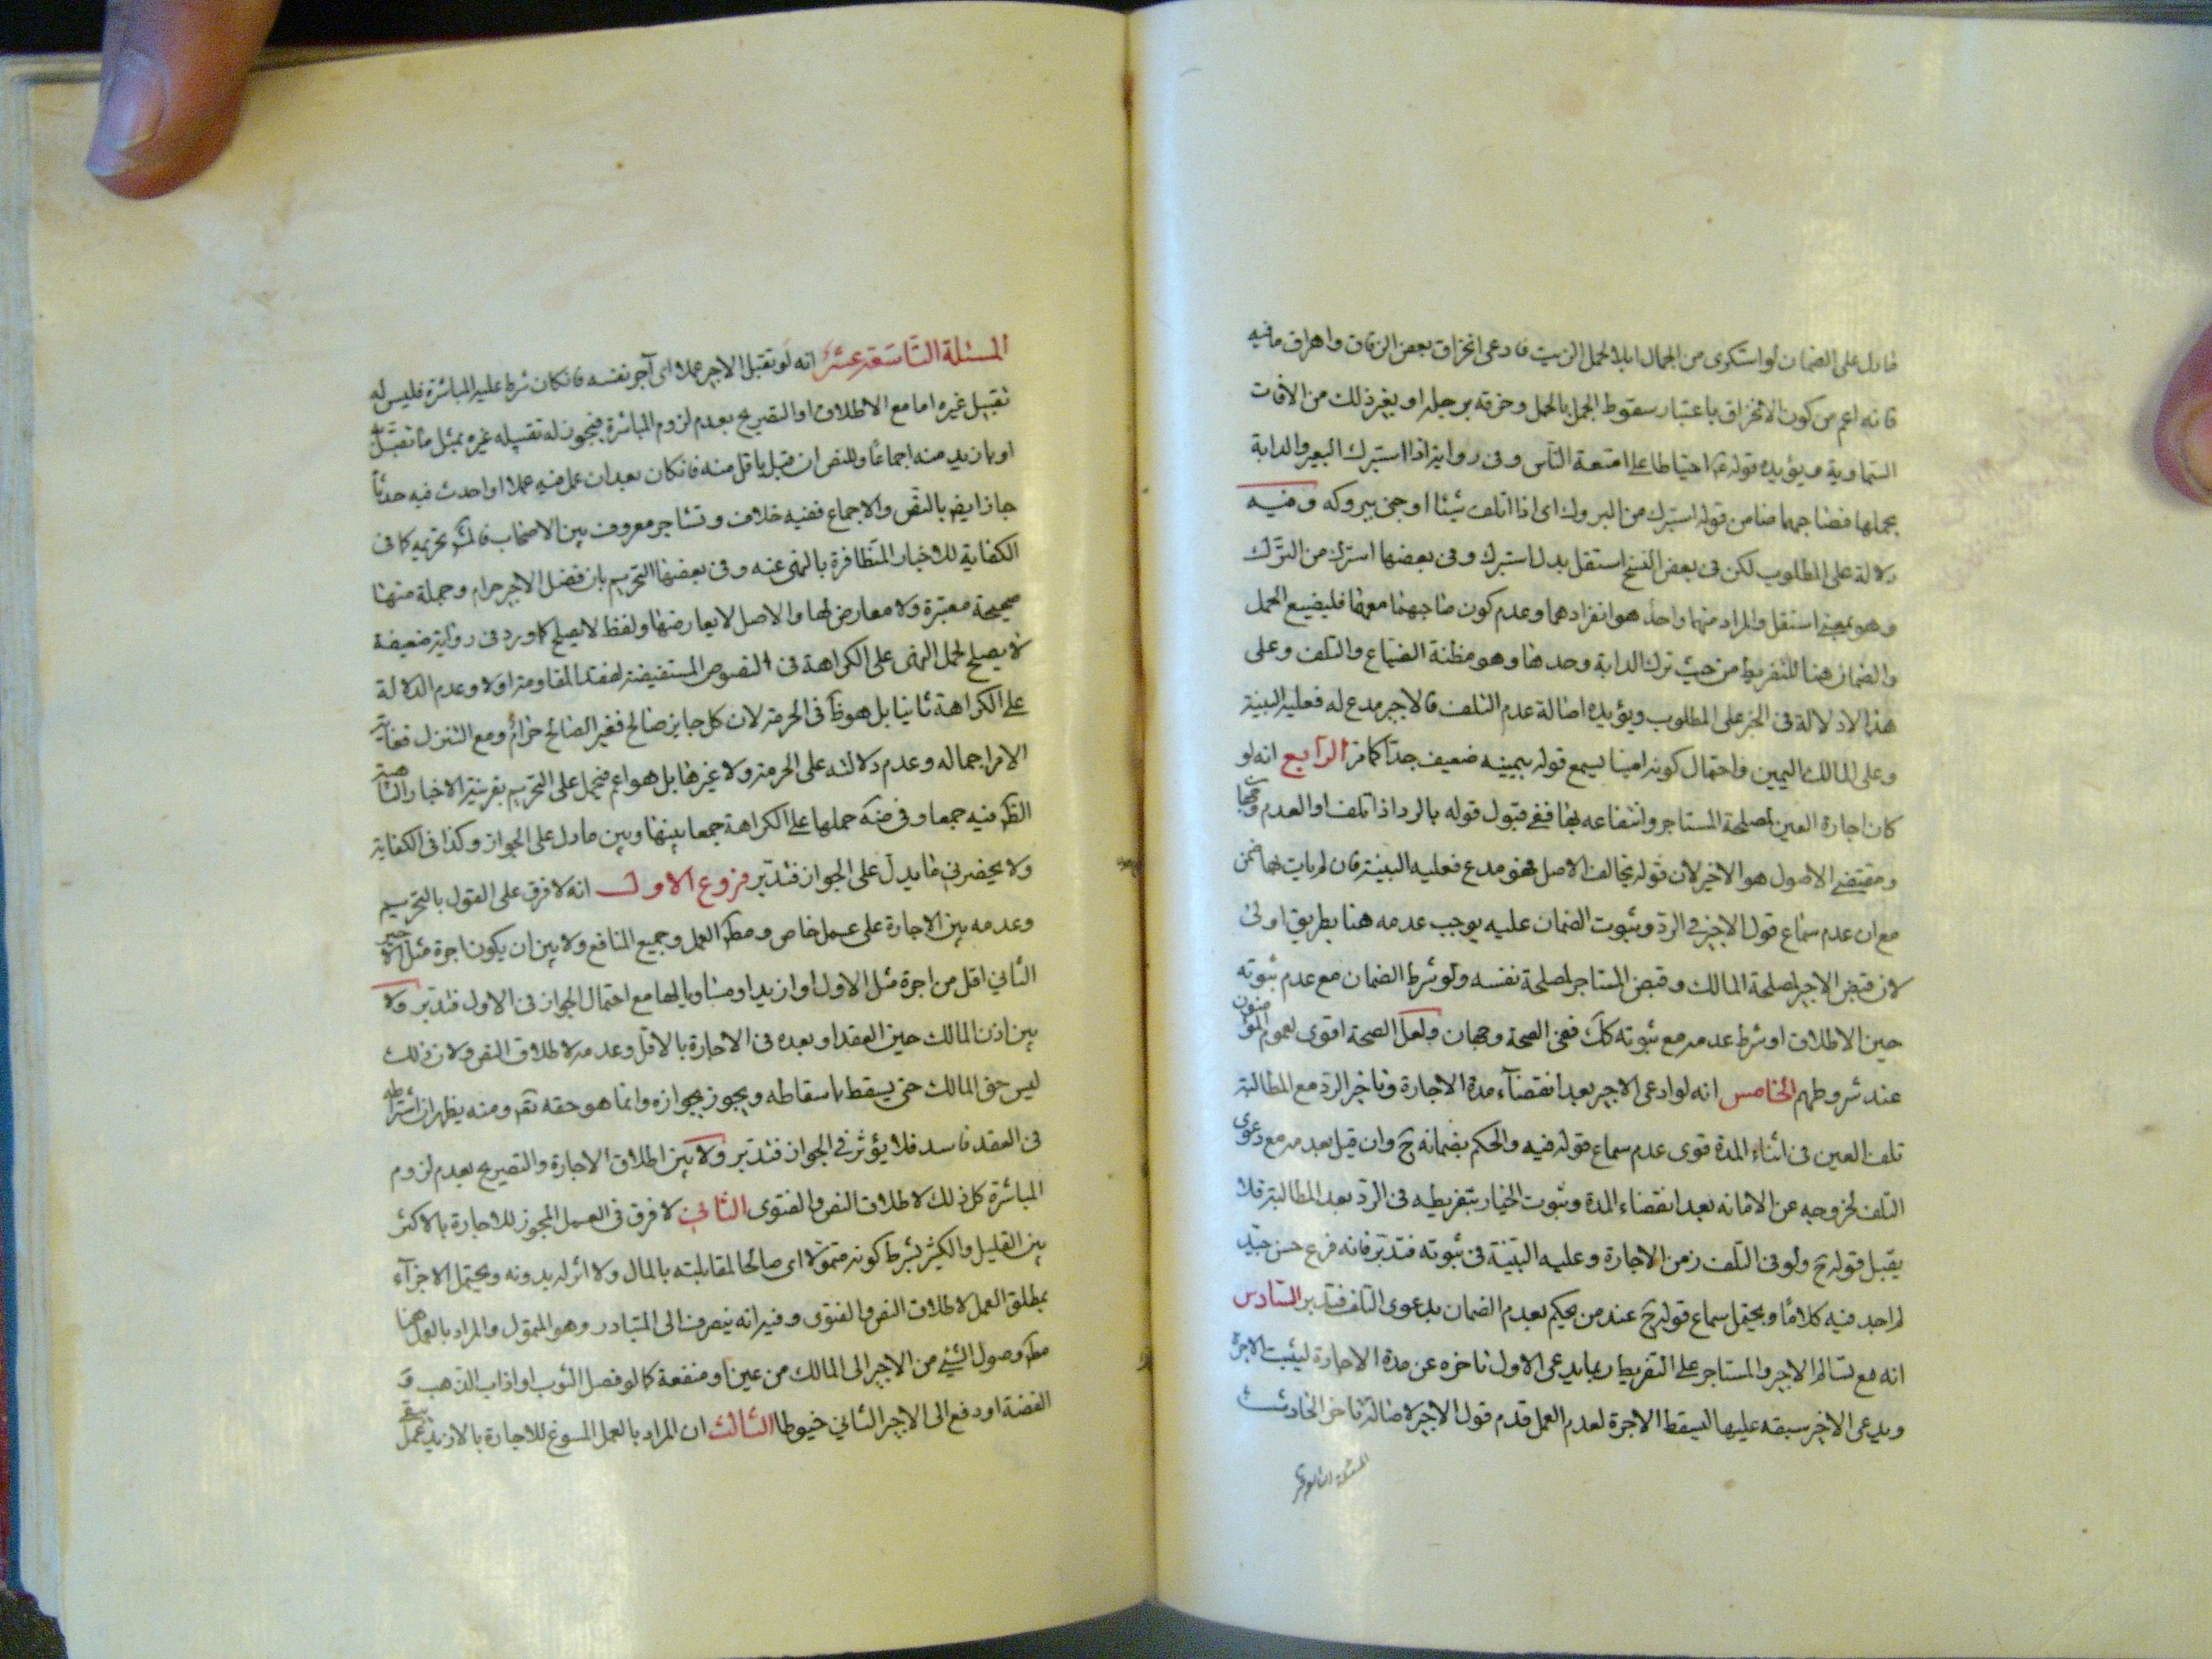 ما دل على الضمان لو استكرى من الجمال ابلا لحمل الزيت فادعى انخراق بعض الزقاق واهراق ما فيه
فانه اعم من كون الانخراق باعتبار سقوط الجمل بالحمل وخرقه برجله او بغير ذلك من الافات
السماوية ويؤيده قوله احتياطا على امتعة الناس وفى رواية اذا استبرك البعير والدابة
بحملها فصاحبها ضامن قوله استبرك من البروك اى اذا اتلف شيئا او جنى ببروكه وفيه
دلالة على المطلوب لكن فى بعض النسخ استقل بدل استبرك وفى بعضها استرك من الترك
وهو بمعنى استقل والمراد منهما واحد هو انفرادهما وعدم كون صاحبهما معهما فليضيع الحمل
والضمان هنا للتفريط من حيث ترك الدابة وحدها وهو مظنة الضياع والتلف وعلى
هذا لا دلالة فى الخبر على المطلوب ويؤيده اصالة عدم التلف فالاجير مدع له فعليه البينة
وعلى المالك اليمين واحتمال كونه امينا يسمع قوله بيمينه ضعيف جدا كما مر الرابع انه لو
كان اجارة العين لمصلحة المستاجر وانتفاعه بها ففى قبول قوله بالرد اذا تلف او العدم وجهان
ومقتضى الاصول هو الاخير لان قوله يخالف الاصل فهو مدع فعليه البينة فان لم يات بها ضمن
مع ان عدم سماع قول الاجير فى الرد وثبوت الضمان عليه يوجب عدمه هنا بطريق اولى
لان قبض الاجير لمصلحة المالك وقبض المستاجر لمصلحة نفسه ولو شرط الضمان مع عدم ثبوته
حين الاطلاق او شرط عدمه مع ثبوته كك ففى الصحة وجهان ولعل الصحة اقوى لعموم المؤمنون
عند شروطهم الخامس انه لو ادعى الاجير بعد انقضاء مدة الاجارة وتاخير الرد مع المطالبة
تلف العين فى اثناء المدة قوى عدم سماع قوله فيه والحكم بضمانه ح وان قيل بعدمه مع دعوى
التلف لخروجه عن الامانه بعد انقضاء المدة وثبوت الخيار بتفريطه فى الرد بعد المطالبة فلا
يقبل قوله ح ولو فى التلف زمن الاجارة وعليه البينة فى ثبوته فتدبر فانه فرع حسن جيد
لم اجد فيه كلاما ويحتمل سماع قوله ح عند من يحكم بعدم الضمان بدعوى التلف فتدبر السادس
انه مع تسالم الاجير والمستاجر على التفريط ربما يدعى الاول تاخره عن مدة الاجارة ليثبت الاجرة
ويدعى الاخر سبقه عليها ليسقط الاجرة لعدم العمل قدم قول الاجير لاصالة تاخر الحادث
المسئلة التاسعة عشر انه لو تقبل الاجير عملا اى آجر نفسه فان كان شرط عليه المباشرة فليس له
تقبيل غيره اما مع الاطلاق او التصريح بعدم لزوم المباشرة فيجوز له تقبيله غيره بمثل ما تقبل
او بازيد منه اجماعا وللنص ان قبل باقل منه فان كان بعد ان عمل فيه عملا او احدث فيه حدثا
جاز ايضا بالنص والاجماع ففيه خلاف وتشاجر معروف بين الاصحاب تحريمه كما فى
الكفاية للاخبار المتظافرة بالنهى عنه وفى بعضها التحريم بان فضل الاجير حرام وجملة منها
صحيحة معتبرة ولا معارض لها والاصل لا يعارضها ولفظ لا يصلح كما ورد فى رواية ضعيفة
لا يصلح لحمل النهى على الكراهة فى النصوص المستفيضة لفقد المقاومة اولا وعدم الدلالة
على الكراهة ثانيا بل هو ظ فى الحرمة لان كل جايز صالح فغير الصالح حرام ومع التنزل فغاية
الامر اجماله وعدم دلالته على الحرمة ولا غيرها بل هو اعم فيحمل على التحريم بقرينة الاخبار الناهية
الظ فيه جمعا وفى حملها على الكراهة جمعا بينها وبين ما دل على الجواز وكذا فى الكفاية
ولا يحضرنى ما يدل على الجواز فتدبر فروع الاول انه لا فرق على القول بالتحريم
وعدمه بين الاجارة على عمل خاص ومط العمل وجميع المنافع ولا بين ان يكون اجرة مثل الاجير
الثاني اقل من اجرة مثل الاول او ازيد او مساويا لها مع احتمال الجواز فى الاول فتدبر ولا
بين اذن المالك حين العقد او بعده فى الاجارة بالاقل وعدمه لاطلاق النص ولان ذلك
ليس حق المالك حتى يسقط باسقاطه ويجوز بجوازه وانما هو حقه تع ومنه يظهر ان اشتراطه
فى العقد فاسد فلا يؤثر فى الجواز فتدبر ولا بين اطلاق الاجارة والتصريح بعدم لزوم
المباشرة كل ذلك لاطلاق النص والفتوى الثانى لا فرق فى العمل المجوز للاجارة بالاكثر
بين القليل والكثير بشرط كونه متمولا اى صالحا لمقابلته بالمال ولا اثر له بدونه ويحتمل الاجزاء
بمطلق العمل لاطلاق النص والفتوى وفيه انه ينصرف الى المتبادر وهو المتمول والمراد بالعمل هنا
مط وصول الشيء من الاجير الى المالك من عين او منفعة كما لو فصل الثوب او اذاب الذهب و
الفضة او دفع الى الاجير الثاني خيوطا الثالث ان المراد بالعمل المسوغ للاجارة بالازيد عمل